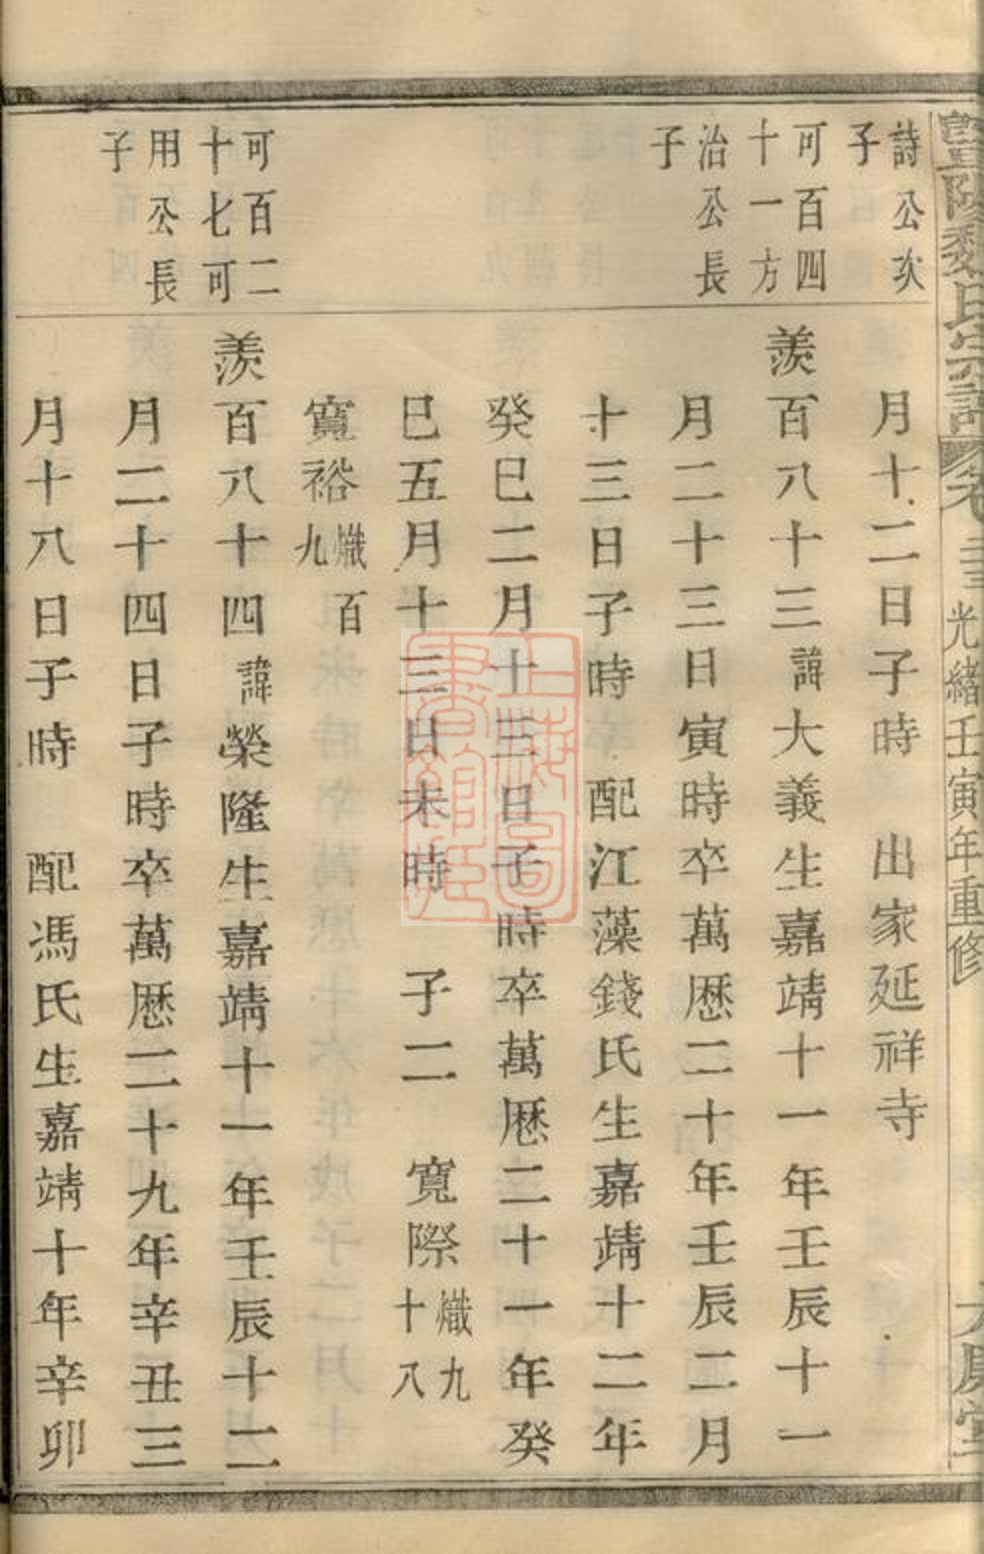 暨陽魏氏宗譜
光緒壬寅年重修
詩公次
子
月十二日子時 出家延祥寺
可百四
十一方
治公長
子
羨百八十三諱大義生嘉靖十一年壬辰十一
月二十三日寅時卒萬厯二十年壬辰二月
十三日子時 配江藻錢氏生嘉靖十二年
癸巳二月十三日子時卒萬厯二十一年癸
巳五月十三日未時 子二 寬際熾九十八
寬裕熾百九
可百二
十七可
用公長
子
羨百八十四諱榮隆生嘉靖十一年壬辰十二
月二十四日子時卒萬厯二十九年辛丑三
月十八日子時 配馮氏生嘉靖十年辛卯
上海圖
書館藏